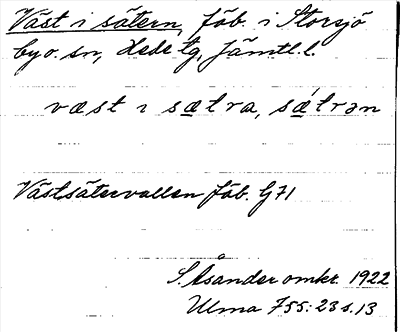 Väst i sätern, fäb. i Storsjö
by o. sn, Hede tg, Jämtl. l.
væst ı sætra, sǽtrən
Västsätervallen fäb. G71
S. Åsander omkr. 1922
Ulma 755: 23 s. 13